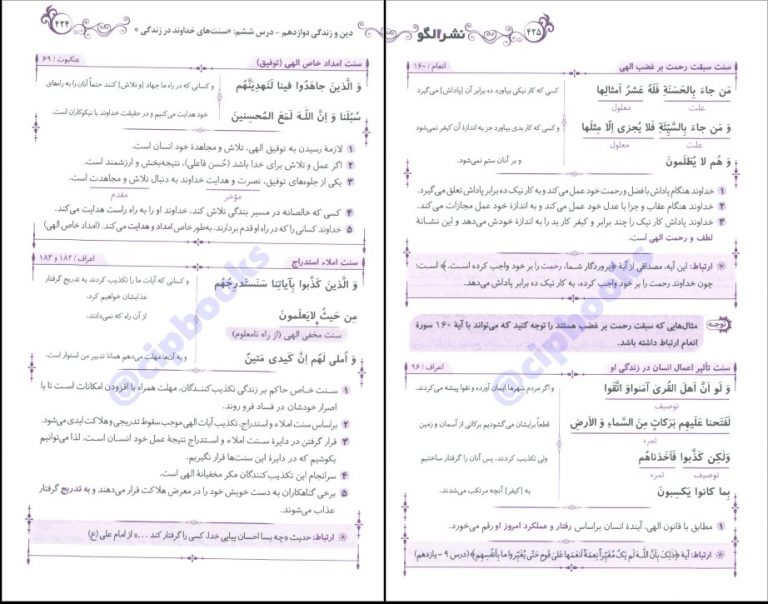 ۴۲۴
دین و زندگی دوازدهم – درس ششم: «سنت‌های خداوند در زندگی»
سنت امداد خاص الهی (توفیق)
عنکبوت / ۶۹
وَ الَّذینَ جاهَدُوا فینا لَنَهدِیَنَّهُم
و کسانی که در راه ما جهاد [و تلاش] کنند حتماً آنان را به راه‌های
سُبُلَنا وَ اِنَّ اللَّهَ لَمَعَ المُحسِنینَ
خود هدایت می‌کنیم و در حقیقت خداوند با نیکوکاران است.
۱ لازمهٔ رسیدن به توفیق الهی، تلاش و مجاهدهٔ خود انسان است.
۲ اگر عمل و تلاش برای خدا باشد (حُسن فاعلی)، نتیجه‌بخش و ارزشمند است.
۳ یکی از جلوه‌های توفیق، نصرت و هدایت خداوند به دنبال تلاش و مجاهدت است.
مؤخر
مقدم
۴ کسی که خالصانه در مسیر بندگی تلاش کند، خداوند او را به راه راست هدایت می‌کند.
۵ خداوند کسانی را که در راه او قدم بردارند، به‌طور خاص امداد و هدایت می‌کند. (امداد خاص الهی)
سنت املاء استدراج
اعراف / ۱۸۲ و ۱۸۳
وَ الَّذینَ کَذَّبوا بِآیاتِنا سَنَستَدرِجُهُم
و کسانی که آیات ما را تکذیب کردند به تدریج گرفتار
عذابشان خواهیم کرد،
مِن حَیثُ لایَعلَمونَ
از آن راه که نمی‌دانند.
سنت مخفی الهی (از راه نامعلوم)
وَ اُملی لَهُم اِنَّ کَیدی مَتینٌ
و به آن‌ها مهلت می‌دهم همانا تدبیر من استوار است.
۱ سنت خاص حاکم بر زندگی تکذیب‌کنندگان، مهلت همراه با افزودن امکانات است تا با
اصرار خودشان در فساد فرو روند.
۲ براساس سنت املاء و استدراج، تکذیب آیات الهی موجب سقوط تدریجی و هلاکت ابدی می‌شود.
۳ قرار گرفتن در دایرهٔ سنت املاء و استدراج نتیجهٔ عمل خود انسان است. لذا می‌توانیم
بکوشیم که در دایرهٔ این سنت‌ها قرار نگیریم.
۴ سرانجام این تکذیب‌کنندگان مکر مخفیانهٔ الهی است.
۵ برخی گناهکاران به دست خویش خود را در معرض هلاکت قرار می‌دهند و به تدریج گرفتار
عذاب می‌شوند.
ارتباط: حدیث «چه بسا احسان پیاپی خدا، کسی را گرفتار کند ...» از امام علی (ع)
نشر الگو
۴۲۵
سنت سبقت رحمت بر غضب الهی
انعام / ۱۶۰
مَن جاءَ بِالحَسَنَةِ فَلَهُ عَشرُ اَمثالِها
کسی که کار نیکی بیاورد ده برابر آن [پاداش] می‌گیرد
علت
معلول
وَ مَن جاءَ بِالسَّیِّئَةِ فَلا یُجزی اِلّا مِثلَها
و کسی که کار بدی بیاورد جز به اندازهٔ آن کیفر نمی‌شود
علت
معلول
وَ هُم لا یُظلَمونَ
و بر آنان ستم نمی‌شود.
۱ خداوند هنگام پاداش با فضل و رحمت خود عمل می‌کند و به کار نیک ده برابر پاداش تعلق می‌گیرد.
۲ خداوند هنگام عقاب و جزا با عدل خود عمل می‌کند و به اندازهٔ خود عمل مجازات می‌کند.
۳ خداوند پاداش کار نیک را چند برابر و کیفر کار بد را به اندازهٔ خودش می‌دهد و این نشانهٔ
لطف و رحمت الهی است.
ارتباط: این آیه، مصداقی از آیهٔ ﴿پروردگار شما، رحمت را بر خود واجب کرده است.﴾ است؛
چون خداوند رحمت را بر خود واجب کرده، به کار نیک ده برابر پاداش می‌دهد.
توجه
مثال‌هایی که سبقت رحمت بر غضب هستند را توجه کنید که می‌تواند با آیهٔ ۱۶۰ سورهٔ
انعام ارتباط داشته باشد.
سنت تأثیر اعمال انسان در زندگی او
اعراف / ۹۶
وَ لَو اَنَّ اَهلَ القُریٰ آمَنواوَ اتَّقَوا
و اگر مردم شهرها ایمان آورده و تقوا پیشه می‌کردند،
توصیف
لَفَتَحنا عَلَیهِم بَرَکاتٍ مِنَ السَّماءِ وَ الاَرضِ
قطعاً برایشان می‌گشودیم برکاتی از آسمان و زمین
ثمره
وَلٰکِن کَذَّبوا فَاَخَذناهُم
ولی تکذیب کردند، پس آنان را گرفتار ساختیم
توصیف
ثمره
بِما کانوا یَکسِبونَ
به [کیفر] آنچه مرتکب می‌شدند.
۱ مطابق با قانون الهی، آیندهٔ انسان براساس رفتار و عملکرد امروز او رقم می‌خورد.
ارتباط: آیهٔ ﴿ذٰلِکَ بِاَنَّ اللَّهَ لَم یَکُ مُغَیِّراً نِعمَةً اَنعَمَها عَلیٰ قَومٍ حَتّیٰ یُغَیِّروا ما بِاَنفُسِهِم﴾ (درس ۹ - یازدهم)
@cipbooks
@cipbooks